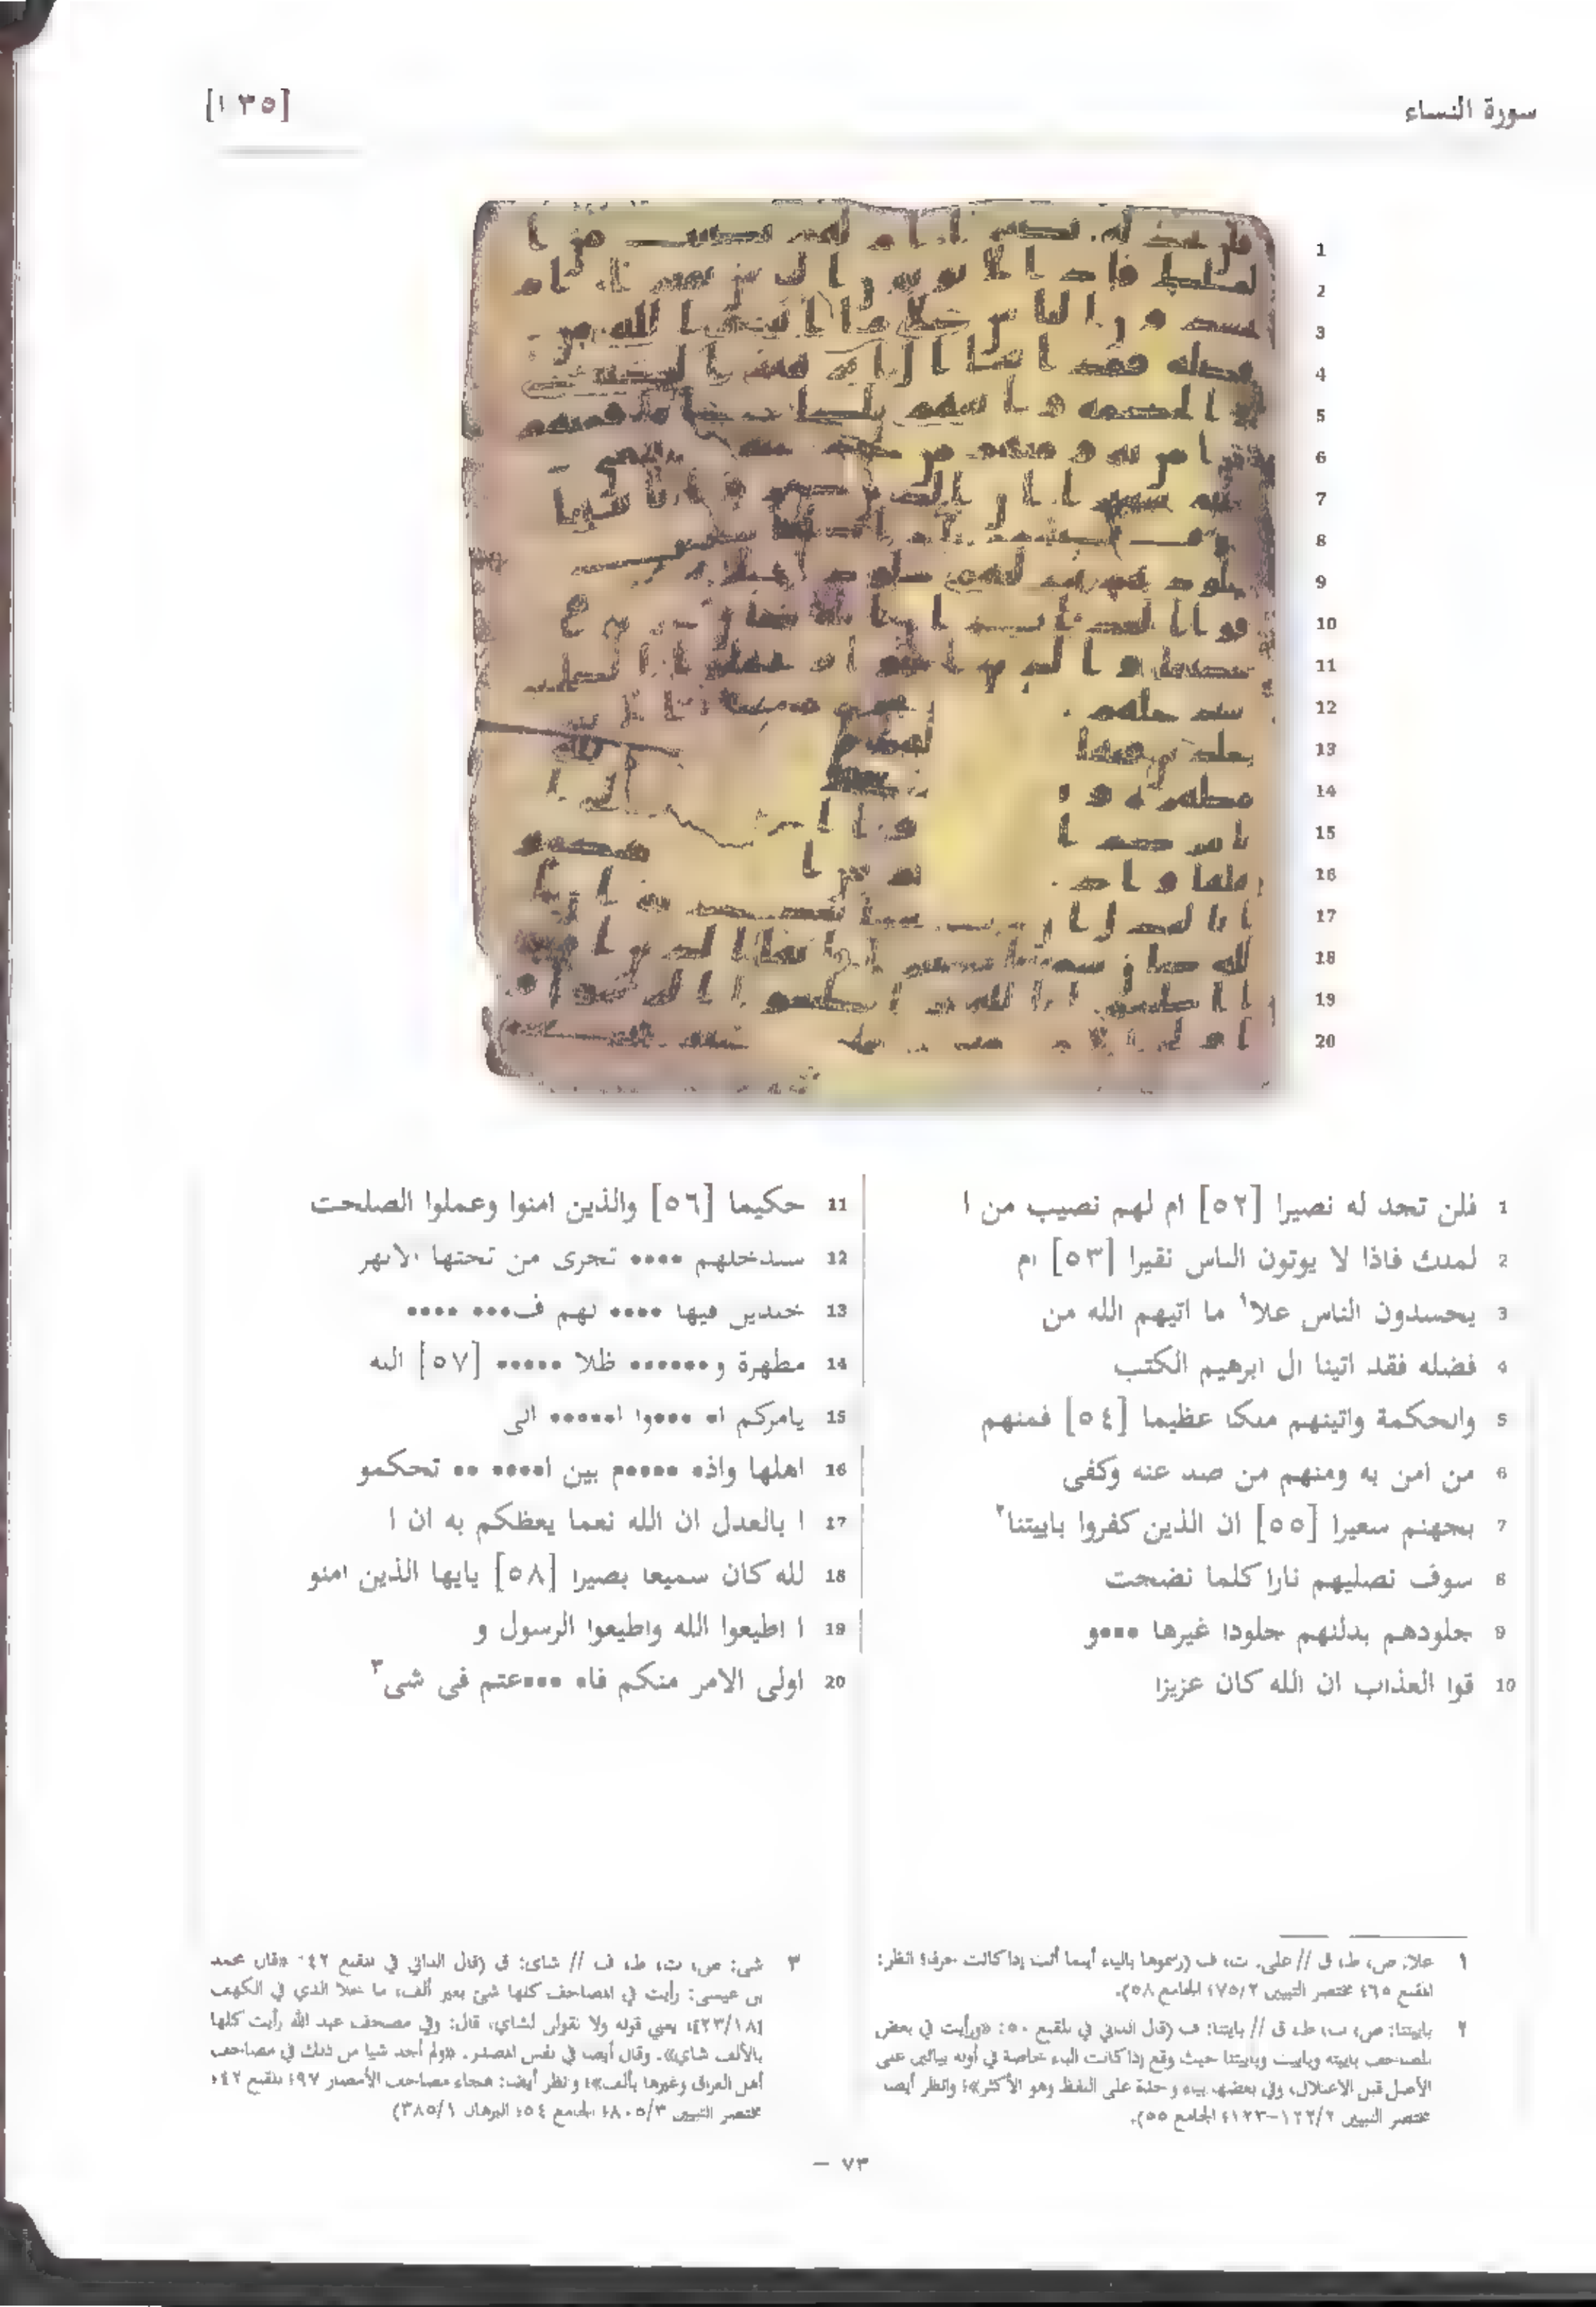 سورة النساء
[١٣٥]
1 فلن تجد له نصيرا [٥٢] ام لهم نصيب من ا
2 لملك فاذا لا يوتون الناس نقيرا [٥٣] ام
3 يحسدون الناس علا١ ما اتيهم الله من
4 فضله فقد اتينا ال ابرهيم الكتب
5 والحكمة واتينهم ملكا عظيما [٥٤] فمنهم
6 من امن به ومنهم من صد عنه وكفى
7 بجهنم سعيرا [٥٥] ان الذين كفروا باييتنا٢
8 سوف نصليهم نارا كلما نضجت
9 جلودهم بدلنهم جلودا غيرها •••و
10 قوا العذاب ان الله كان عزيزا
11 حكيما [٥٦] والذين امنوا وعملوا الصلحت
12 سندخلهم •••• تجرى من تحتها الانهر
13 خلدين فيها •••• لهم ف••• ••••
14 مطهرة و•••••• ظلا ••••• [٥٧] الله
15 يامركم ا• •••وا ا••••• الى
16 اهلها واذ• •••••م بين ا•••• •• تحكمو
17 ا بالعدل ان الله نعما يعظكم به ان ا
18 لله كان سميعا بصيرا [٥٨] يايها الذين امنو
19 ا اطيعوا الله واطيعوا الرسول و
20 اولى الامر منكم فا• •••عتم فى شى٣
١ علا: ص، ط، ق // على: ت، ف (رسموها بالياء أينما أتت إذا كانت حرفا؛ انظر:
المقنع ٦٥؛ مختصر التبيين ٧٥/٢؛ الجامع ٥٨).
٢ باييتنا: ص، ت، ط، ق // بايتنا: ف (قال الداني في المقنع ٥٠: «ورأيت في بعض
المصاحف باييته وباييت وباييتنا حيث وقع إذا كانت الباء خاصة في أوله بيائين على
الأصل قبل الاعتلال، وفي بعضها بياء واحدة على اللفظ وهو الأكثر»؛ وانظر أيضا
مختصر التبيين ١٢٢/٢-١٢٣؛ الجامع ٥٥).
٣ شى: ص، ت، ط، ف // شاى: ق (قال الداني في المقنع ٤٢: «قال محمد
بن عيسى: رأيت في المصاحف كلها شئ بغير ألف، ما خلا الذي في الكهف
[٢٣/١٨]، يعني قوله ولا تقولن لشاي، قال: وفي مصحف عبد الله رأيت كلها
بالألف شاي». وقال أيضا في نفس المصدر: «ولم أجد شيا من ذلك في مصاحف
أهل العراق وغيرها بألف»؛ وانظر أيضا: هجاء مصاحف الأمصار ٩٧؛ المقنع ٤٢؛
مختصر التبيين ٨٠٥/٣؛ الجامع ٥٤؛ البرهان ٣٨٥/١)
٧٣ –